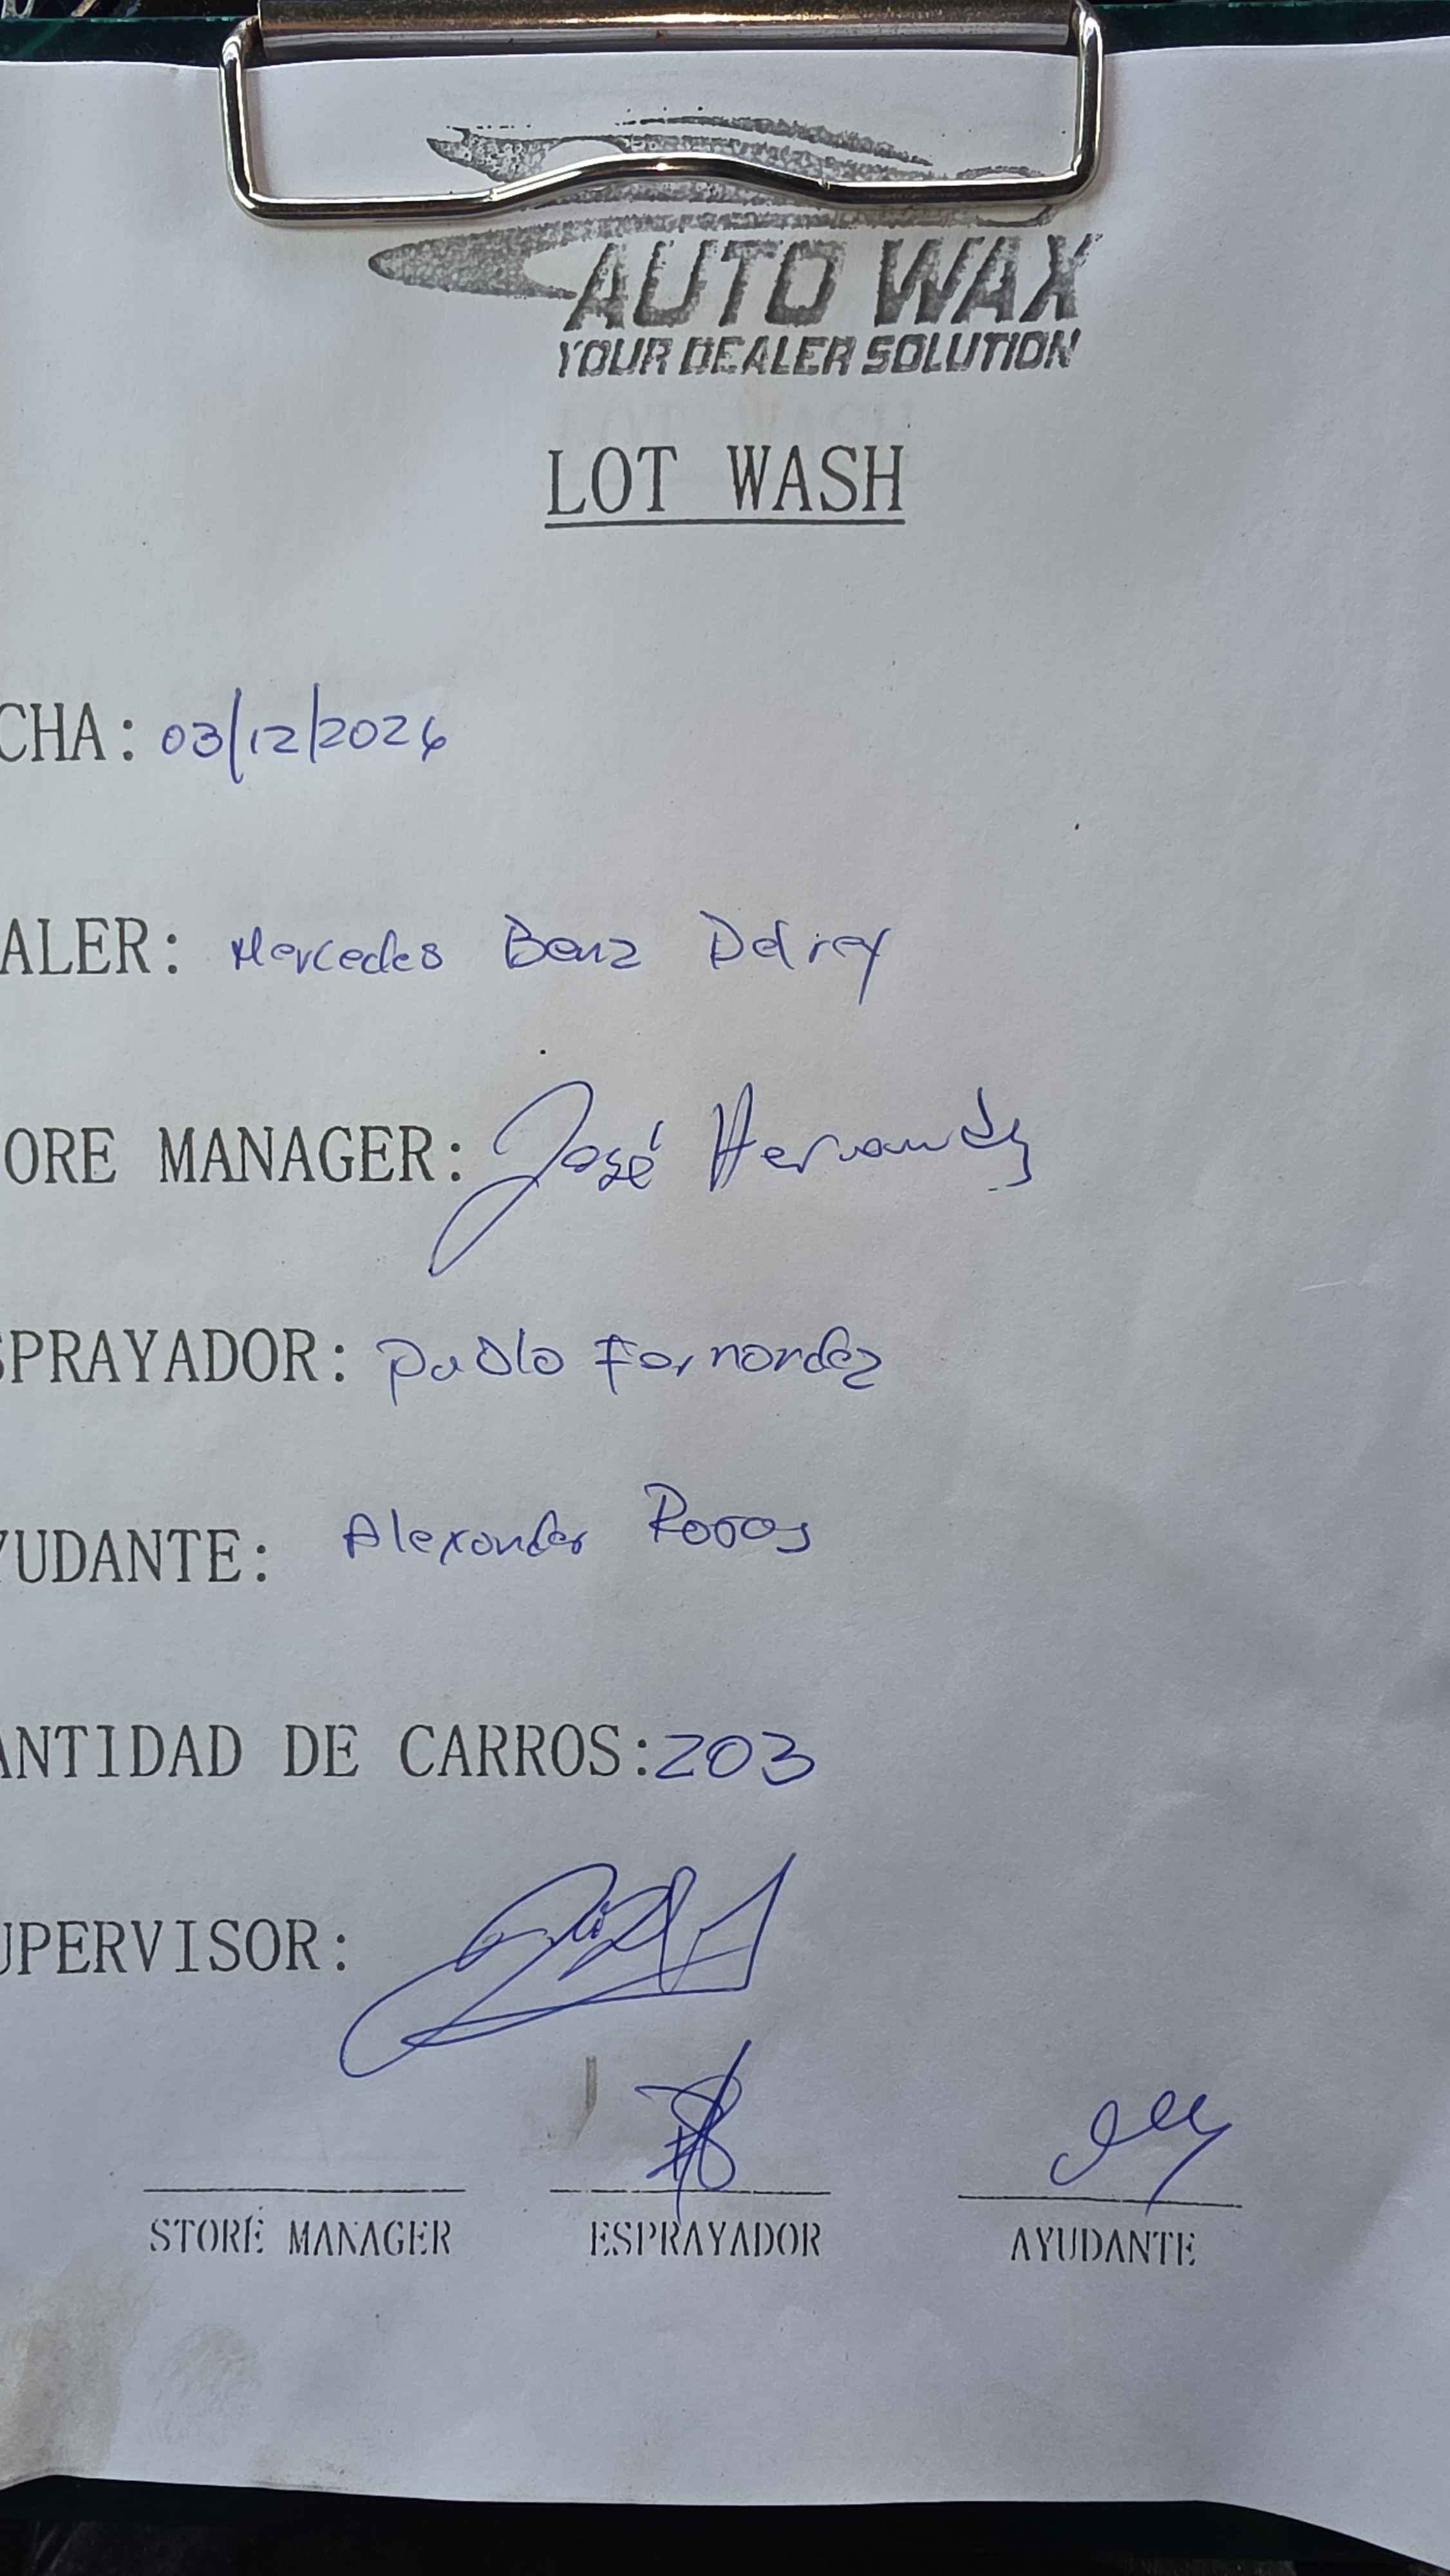 AUTO WAX
YOUR DEALER SOLUTION
LOT WASH
CHA: 03/12/2026
ALER: Mercedes Benz Delrey
ORE MANAGER: José Hernandz
SPRAYADOR: Pablo Fernandez
YUDANTE: Alexander
ANTIDAD DE CARROS: 203
UPERVISOR:
STORE MANAGER ESPRAYADOR AYUDANTE